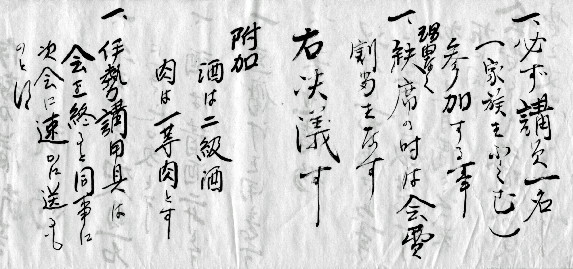 一、必ず講員一名
（家族を含む）
参加する事
一、理由なく欠席の時は会費
割当を為す
右决議す
附加
酒は二級酒
肉は一等肉とす
一、伊勢講用具は
会を終ると同時に
次会に速かに送るも
のとす